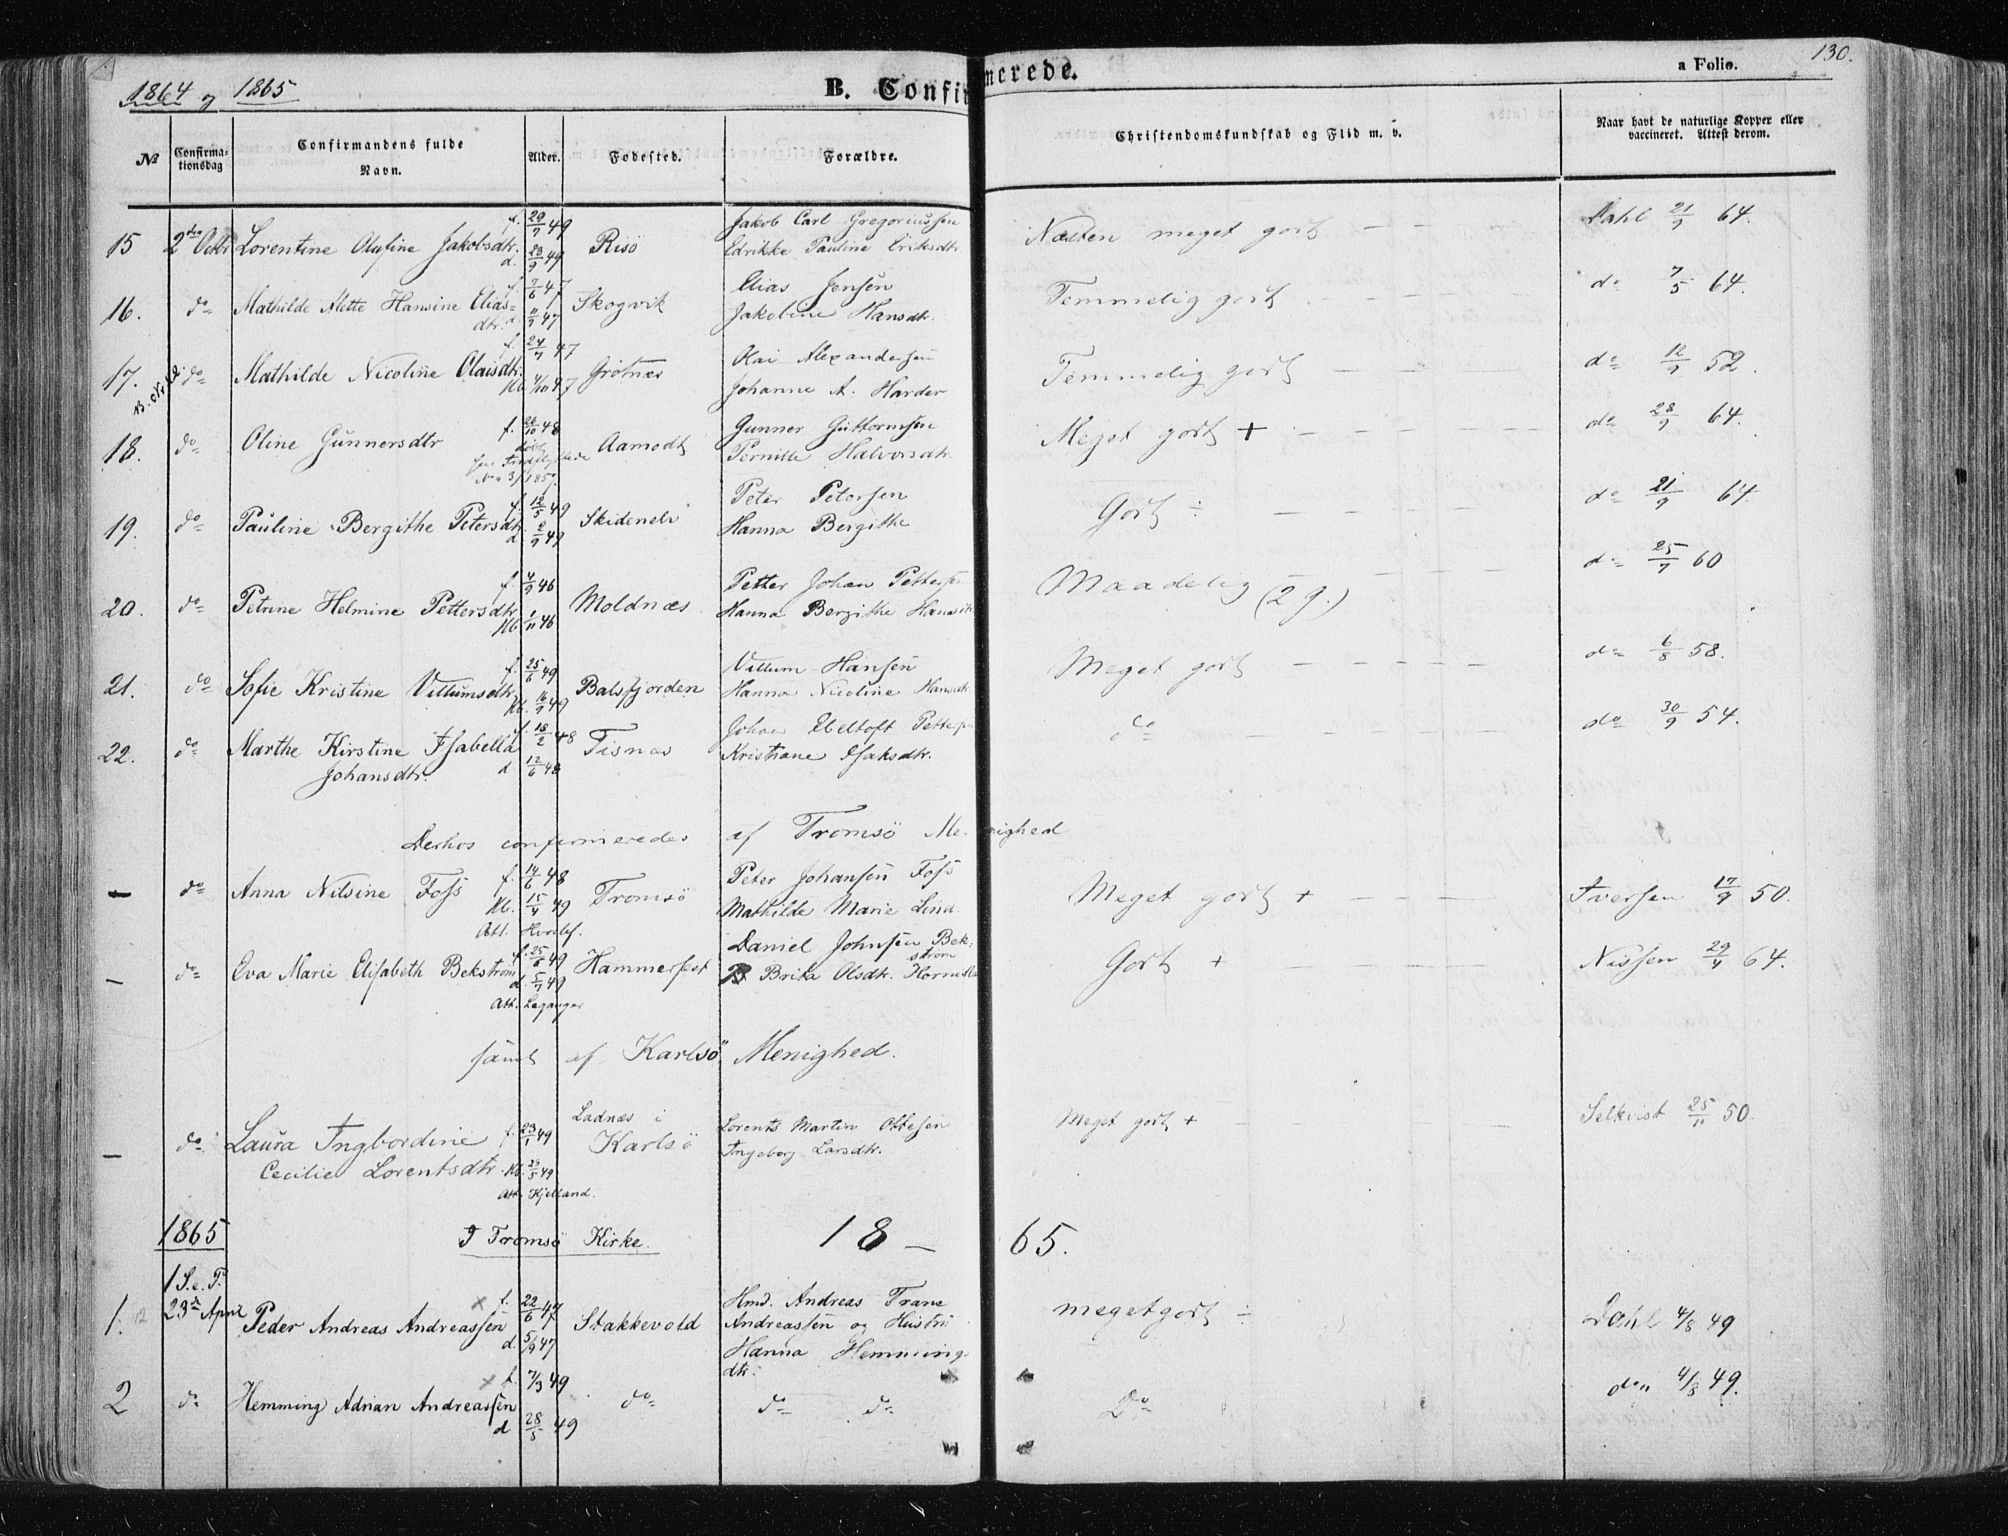 1864 og 1865
B. Confirmerede.
a Folio.
130.
No
Confirma-
tionsdag
Confirmandens fulde
Navn.
Alder.
Fødested.
Forældre.
Christendomskundskab og Flid m. v.
Naar havt de naturlige Kopper eller
vaccineret. Attest derom.
f. 29/7 49 Jakob Carl Gregoriussen
15 2den Octbr Lorentine Olufine Jakobsdtr. Risö Edrikke Pauline Eriksdtr. Næsten meget godt Dahl 21/9 64.
d. 23/9 49
f. 7/6 47 Elias Jensen
16. do Mathilde Alette Hansine Elias- Skogvik Jakobine Hansdtr. Temmelig godt do 7/5 64.
dtr. d. 11/7 47
f. 24/7 47 Kai Alexandersen
17. do Mathilde Nicoline Olaisdtr. Grötnæs Johanne A. Harder Temmelig godt do 12/9 52.
Kb. 4/10 47
f. 26/10 48 Gunner Guttormsen
18. do Oline Gunnersdtr Aamodt Pernille Halvorsdtr. Meget godt + do 28/9 64.
f. 12/5 49 Peter Petersen
19. do Pauline Bergithe Petersdtr. Skidenelv Hanna Bergithe Godt ÷ do 21/9 64.
d. 2/9 49
f. 4/9 46 Petter Johan Pettersen
20. do Petrine Helmine Pettersdtr. Moldnæs Hanna Bergithe Hansdtr. Maadelig (2 g.) do 25/7 60
Kb. 1/11 46
f. 25/6 49 Villum Hansen
21. do Sofie Kristine Villumsdtr. Balsfjorden Hanna Nicoline Hansdtr. Meget godt do 6/8 58.
Kb. 16/9 49
f. 18/2 48 Johan Ebeltoft Petters
22. do Marthe Kirstine Isabella Tisnæs Kristiane Isaksdtr. do do 30/9 54.
Johansdtr. d. 12/6 48
Derhos confirmeredes af Tromsö Menighed
f. 14/6 48 Peter Johansen Foss
– do Anna Nilsine Foss Tromsö Mathilde Marie Lind. Meget godt + Iversen 17/9 50.
Kb. 15/4 49
Att. Hvoslef.
f. 25/6 49 Daniel Johnsen Bek-
ström
– do Eva Marie Elisabeth Bekström Hammerfest Brita Olsdtr. Godt + Nissen 29/4 64.
d. 5/7 49
Att. Leganger
samt af Karlsö Menighed.
Ladnæs i
– do Laura Ingbordine f. 23/1 49 Karlsö Lorents Martin Ottesen Meget godt + Selkvist 25/11 50.
Cecilie Lorentsdtr. Kb. 29/5 49 Ingeborg Larsdtr.
Att. Kjelland.
1865 I Tromsö Kirke. 18 – 65.
1 S. e. P.
1. 23de April Peder Andreas Andreassen f. 22/6 47 Stakkevold Hmd. Andreas Trane meget godt ÷ Dahl 4/8 49
d. 5/9 47 Andreassen og Hustru
Hanna Hemmings-
dtr.
2 do Hemming Adrian Andreassen f. 7/3 49 do do do Do do 4/8 49.
d 28/5 49